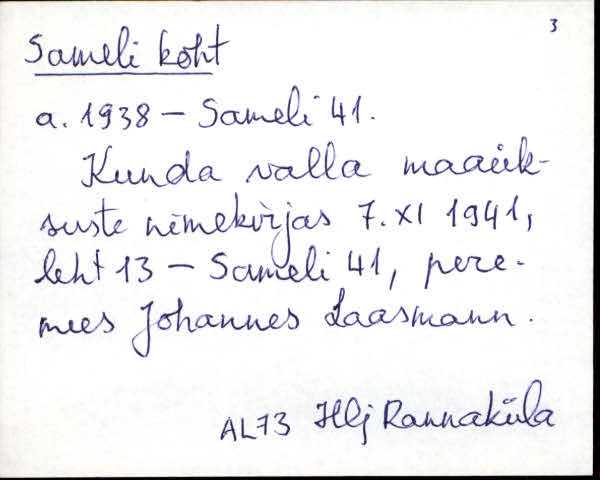 3
Sameli koht
a. 1938 – Sameli 41.
Kunda valla maaük-
suste nimekirjas 7. XI 1941,
leht 13 – Sameli 41, pere-
mees Johannes Laasmann.
AL73 Hlj Rannaküla